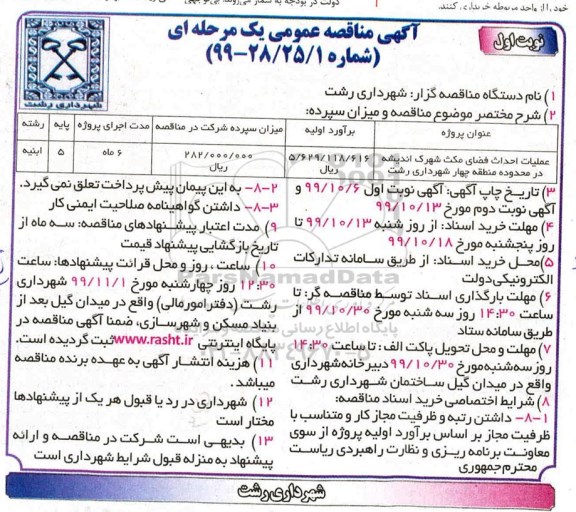 نوبت اول
آگهی مناقصه عمومی یک مرحله ای
(شماره ۹۹-۲۸/۲۵/۱)
شهرداری رشت
۱) نام دستگاه مناقصه گزار: شهرداری رشت
۲) شرح مختصر موضوع مناقصه و میزان سپرده:
عنوان پروژه
برآورد اولیه
میزان سپرده شرکت در مناقصه
مدت اجرای پروژه
پایه
رشته
عملیات احداث فضای مکث شهرک اندیشه در محدوده منطقه چهار شهرداری رشت
۵/۶۲۹/۱۱۸/۶۱۶ ریال
۲۸۲/۰۰۰/۰۰۰ ریال
۶ ماه
۵
ابنیه
۳) تاریخ چاپ آگهی: آگهی نوبت اول ۹۹/۱۰/۶ و
آگهی نوبت دوم مورخ ۹۹/۱۰/۱۳
۴) مهلت خرید اسناد: از روز شنبه ۹۹/۱۰/۱۳ تا
روز پنجشنبه مورخ ۹۹/۱۰/۱۸
۵) محل خرید اسناد: از طریق سامانه تدارکات
الکترونیکی دولت
۶) مهلت بارگذاری اسناد توسط مناقصه گر: تا
ساعت ۱۴:۳۰ روز سه شنبه مورخ ۹۹/۱۰/۳۰ از
طریق سامانه ستاد
۷) مهلت و محل تحویل پاکت الف: تا ساعت ۱۴:۳۰
روز سه شنبه مورخ ۹۹/۱۰/۳۰ دبیرخانه شهرداری
واقع در میدان گیل ساختمان شهرداری رشت
۸) شرایط اختصاصی خرید اسناد مناقصه:
۸-۱- داشتن رتبه و ظرفیت مجاز کار و متناسب با
ظرفیت مجاز بر اساس برآورد اولیه پروژه از سوی
معاونت برنامه ریزی و نظارت راهبردی ریاست
محترم جمهوری
۸-۲- به این پیمان پیش پرداخت تعلق نمی گیرد.
۸-۳- داشتن گواهینامه صلاحیت ایمنی کار
۹) مدت اعتبار پیشنهادهای مناقصه: سه ماه از
تاریخ بازگشایی پیشنهاد قیمت
۱۰) ساعت، روز و محل قرائت پیشنهادها: ساعت
۱۲:۳۰ روز چهارشنبه مورخ ۹۹/۱۱/۱ شهرداری
رشت (دفتر امور مالی) واقع در میدان گیل بعد از
بنیاد مسکن و شهرسازی، ضمنا آگهی مناقصه در
پایگاه اینترنتی www.rasht.ir ثبت گردیده است.
۱۱) هزینه انتشار آگهی به عهده برنده مناقصه
میباشد.
۱۲) شهرداری در رد یا قبول هر یک از پیشنهادها
مختار است
۱۳) بدیهی است شرکت در مناقصه و ارائه
پیشنهاد به منزله قبول شرایط شهرداری است
شهرداری رشت